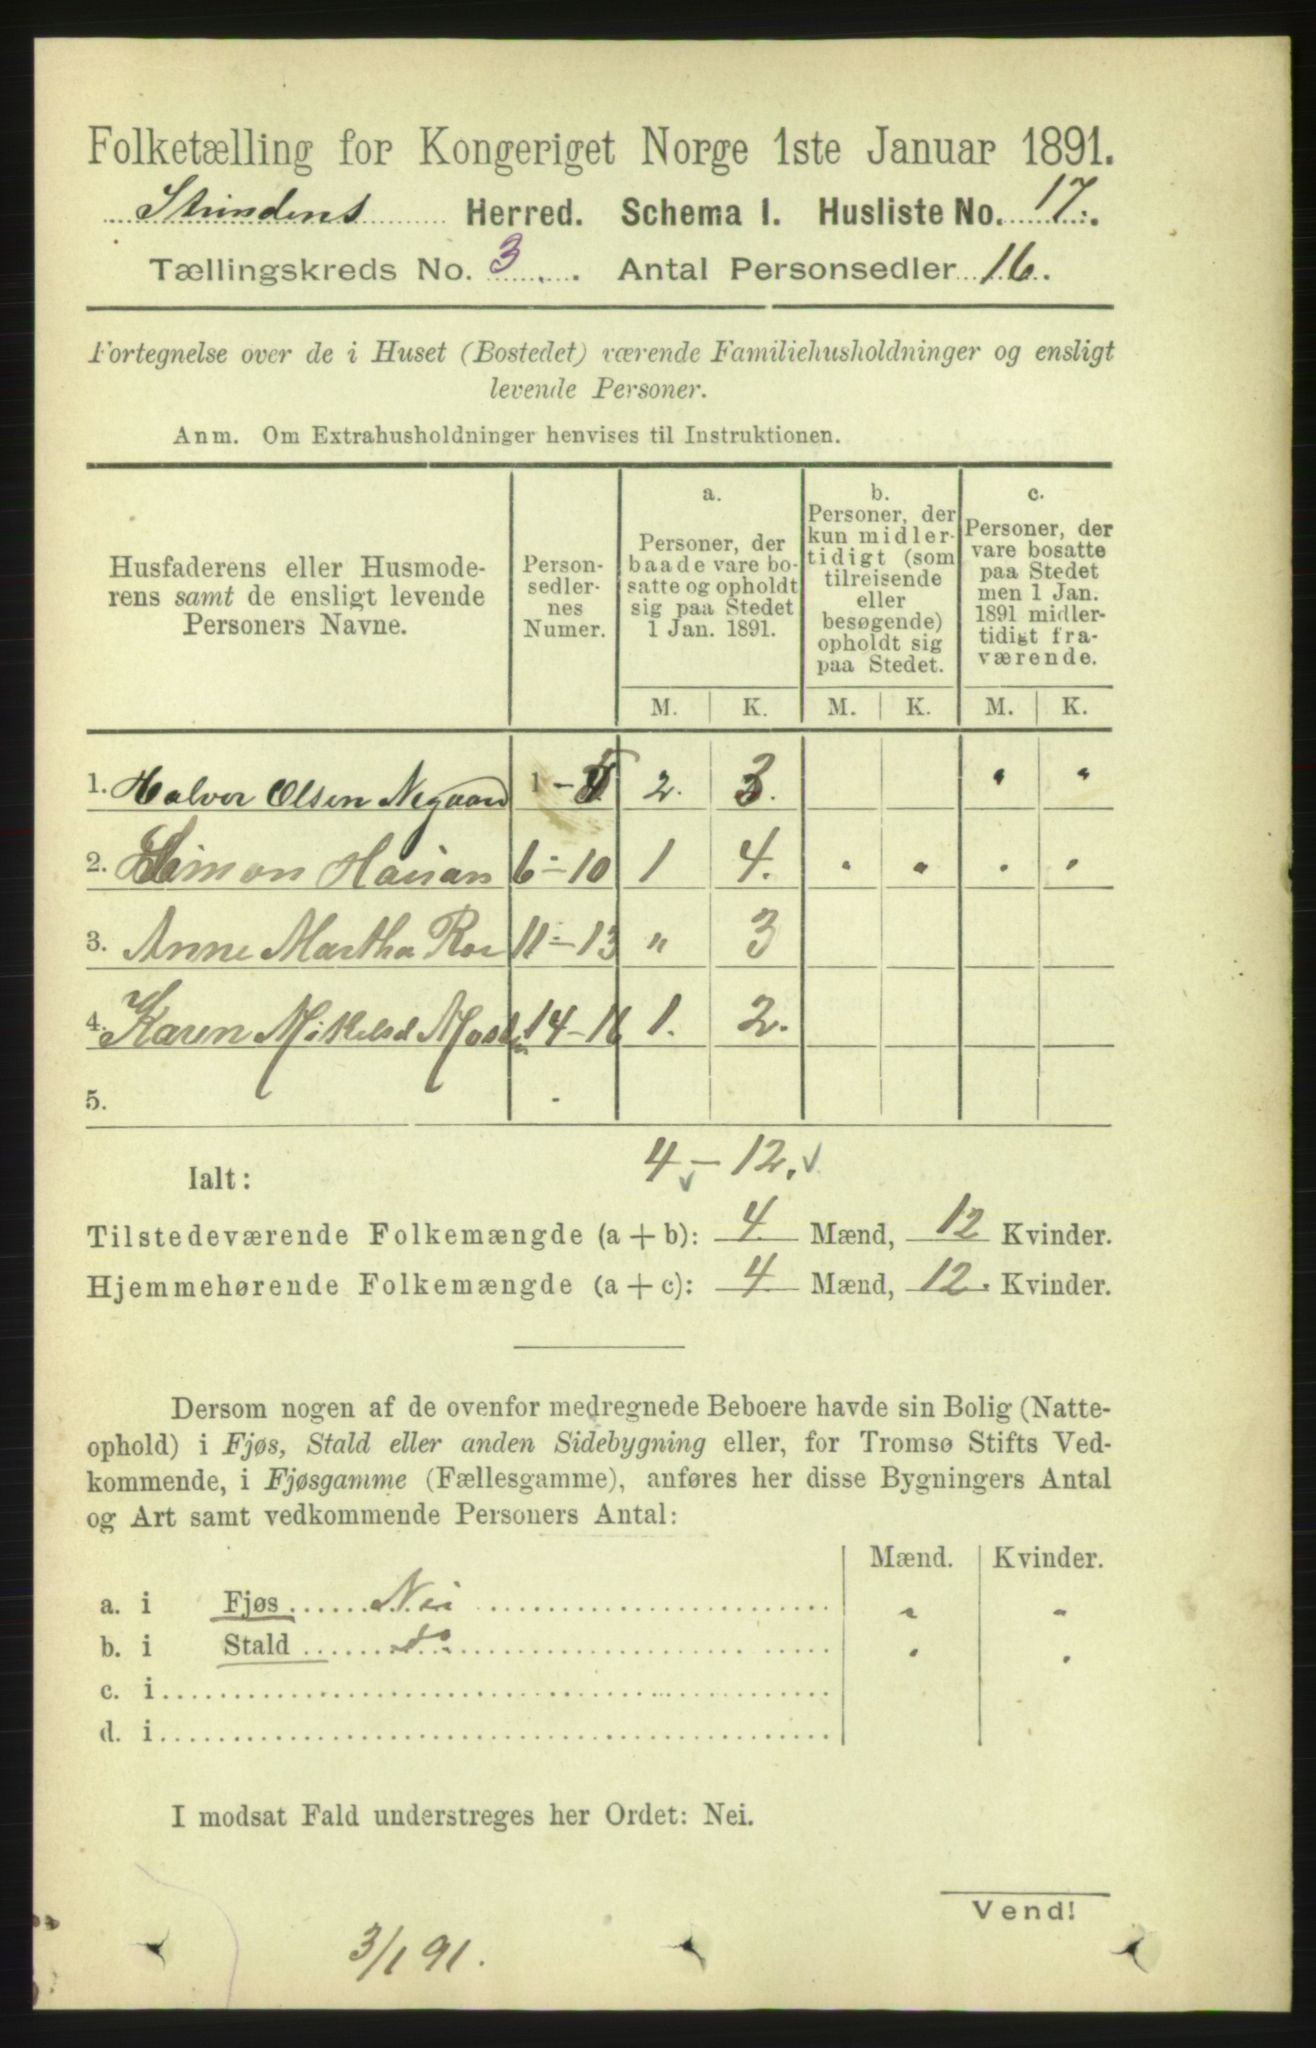 Folketælling for Kongeriget Norge 1ste Januar 1891.
Strindens Herred. Schema I. Husliste No. 17.
Tællingskreds No. 3. Antal Personsedler 16.
Fortegnelse over de i Huset (Bostedet) værende Familiehusholdninger og ensligt
levende Personer.
Anm. Om Extrahusholdninger henvises til Instruktionen.
Husfaderens eller Husmode-
rens samt de ensligt levende
Personers Navne.
Person-
sedler-
nes
Numer.
a.
Personer, der
baade vare bo-
satte og opholdt
sig paa Stedet
1 Jan. 1891.
b.
Personer, der
kun midler-
tidigt (som
tilreisende
eller
besøgende)
opholdt sig
paa Stedet.
c.
Personer, der
vare bosatte
paa Stedet
men 1 Jan.
1891 midler-
tidigt fra-
værende.
M. K. M. K. M. K.
1. Halvor Olsen Negaard 1-5 2. 3. " "
2. Simon 6-10 1 4. " " " "
3. Anne Martha Roe 11-13 " 3
4. Karen Mikelsd 14-16 1. 2.
5. -
4 - 12.
Ialt:
Tilstedeværende Folkemængde (a + b): 4 Mænd, 12 Kvinder.
Hjemmehørende Folkemængde (a + c): 4 Mænd, 12. Kvinder.
Dersom nogen af de ovenfor medregnede Beboere havde sin Bolig (Natte-
ophold) i Fjøs, Stald eller anden Sidebygning eller, for Tromsø Stifts Ved-
kommende, i Fjøsgamme (Fællesgamme), anføres her disse Bygningers Antal
og Art samt vedkommende Personers Antal:
Mænd. Kvinder.
a. i Fjøs Nei " "
b. i Stald do " "
c. i
d. i
I modsat Fald understreges her Ordet: Nei.
Vend!
3/1 91.